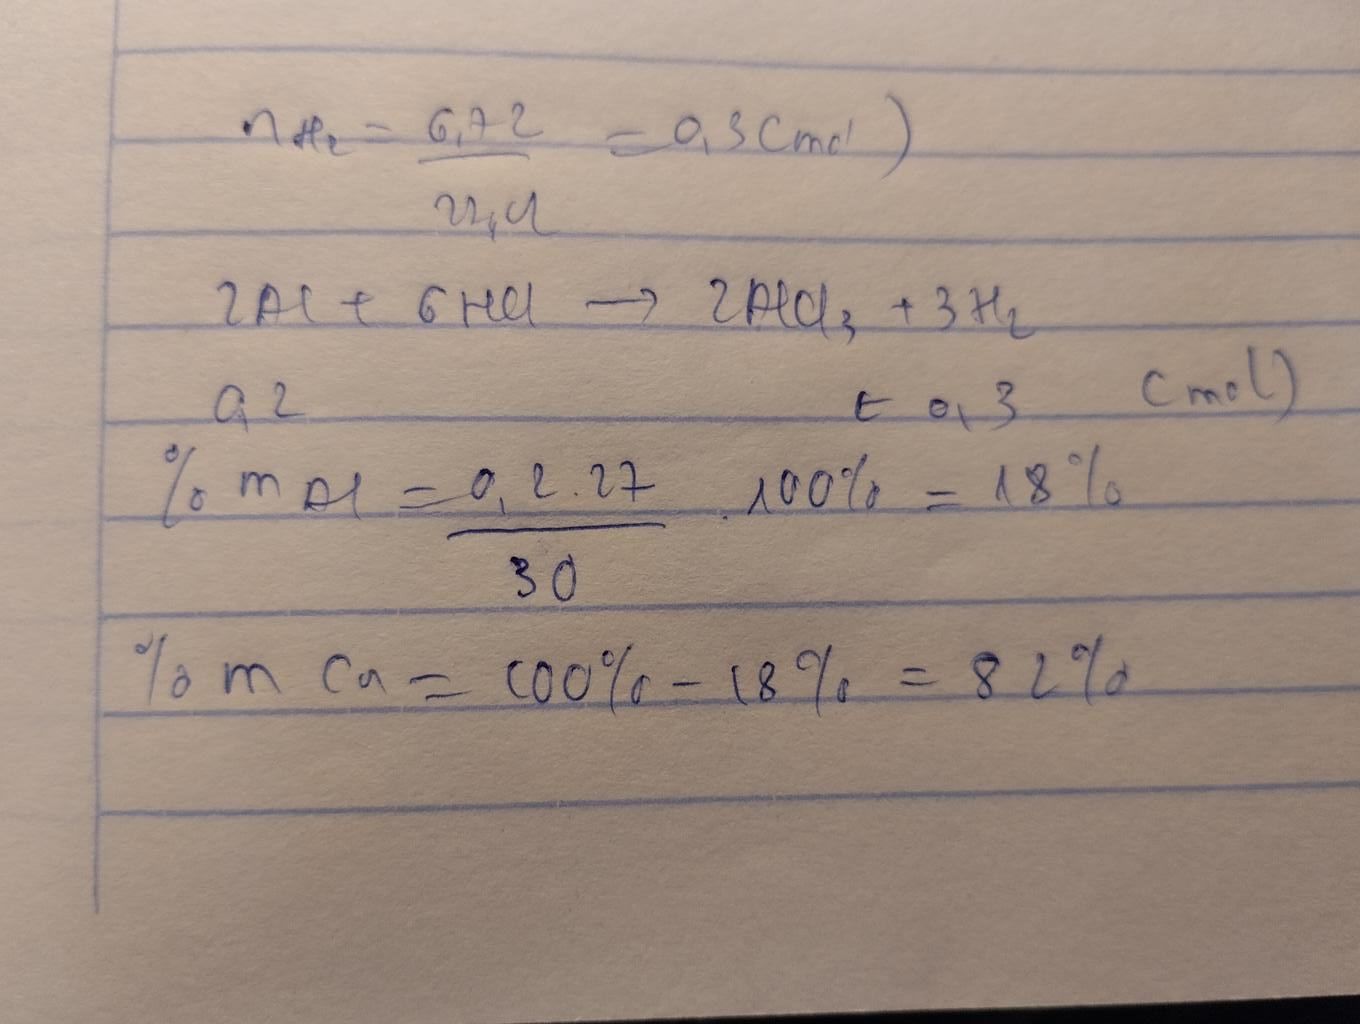 nH₂ = 6,72 / 22,4 = 0,3 (mol)
2Al + 6HCl → 2AlCl₃ + 3H₂
0,2 ← 0,3 (mol)
% m Al = 0,2.27 / 30 . 100% = 18%
% m Cu = 100% - 18% = 82%